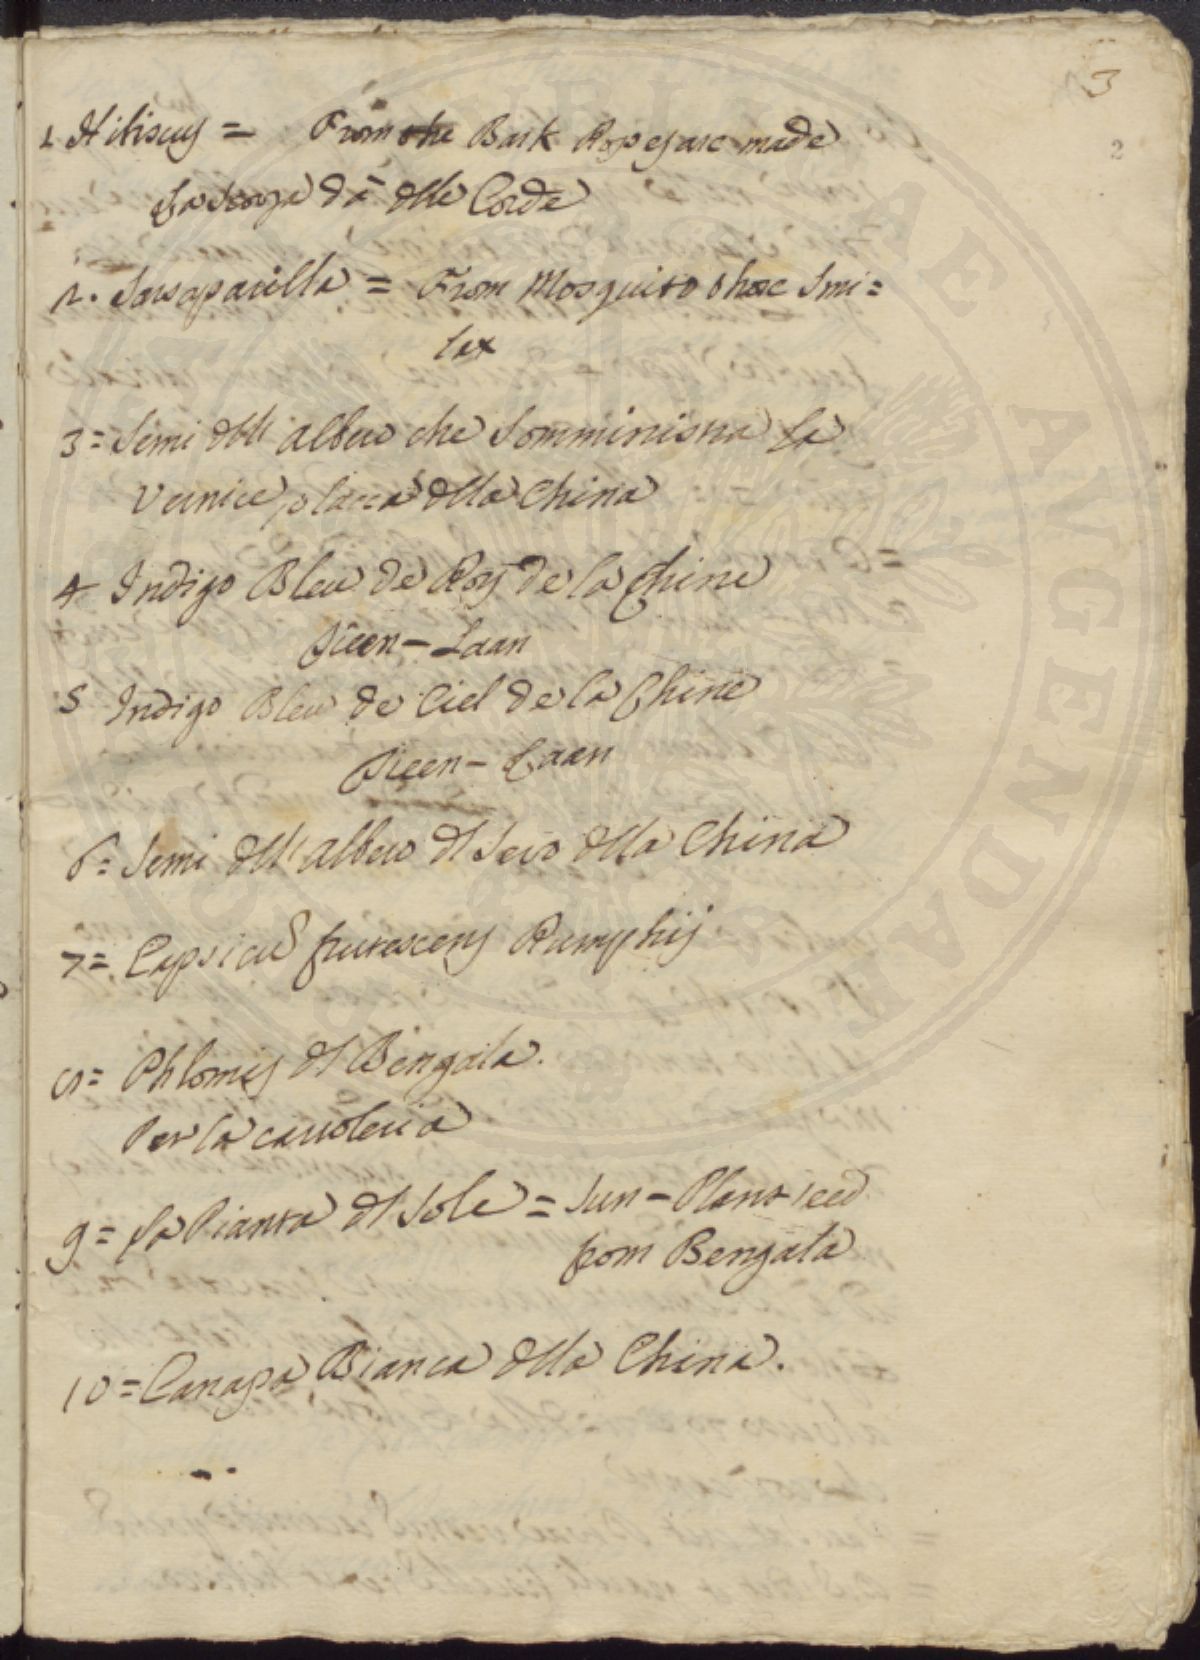 3
2
1 Hibiscus = From the Bark Ropes are made
La Scorza dà delle Corde
2. Sarsaparilla = From Mosquito Shore Smi=
lax
3 = Semi dell' albero che somministra la
Vernice, o lacca della China
4 Indigo Bleu de Roy de la Chine
Tieen - Laan
5 Indigo Bleu de Ciel de la Chine
Tieen - Laan
6 = Semi dell' albero di Sevo della China
7 = Capsicum frutescens Rumphij
8 = Phlomis di Bengala.
Per la
9 = La Pianta di Sole = Sun - Plant seed
from Bengala
10 = Canapa Bianca della China.
BIBLIOTHECAE AVGENDAE